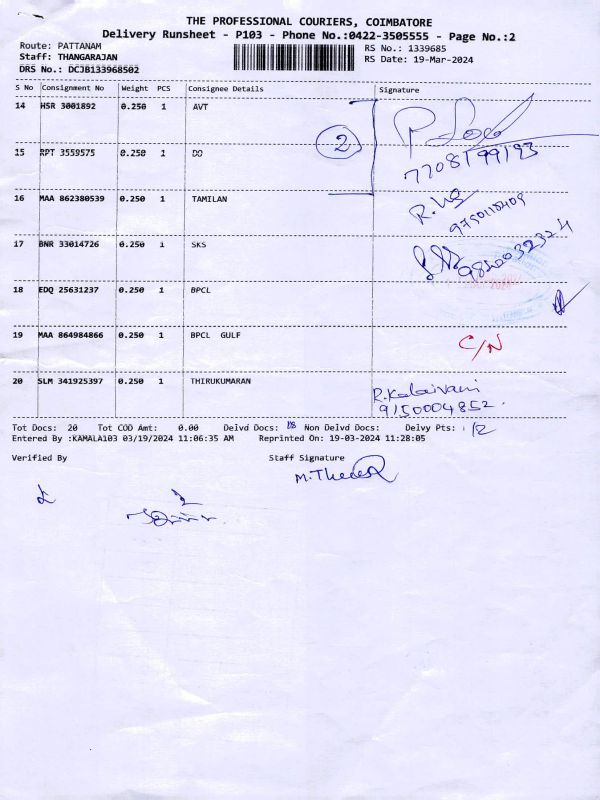 THE PROFESSIONAL COURIERS, COIMBATORE
Delivery Runsheet - P103 - Phone No.:0422-3505555 - Page No.:2
Route: PATTANAM RS No.: 1339685
Staff: THANGARAJAN RS Date: 19-Mar-2024
DRS No.: DCJB133968502
S No Consignment No Weight PCS Consignee Details Signature
14 HSR 3001892 0.250 1 AVT
2
15 RPT 3559575 0.250 1 DO 7708199193
16 MAA 862380539 0.250 1 TAMILAN
9750118409
17 BNR 33014726 0.250 1 SKS
18 EDQ 25631237 0.250 1 BPCL
19 MAA 864984866 0.250 1 BPCL GULF C/N
20 SLM 341925397 0.250 1 THIRUKUMARAN R.Kalaivani
9150004852.
Tot Docs: 20 Tot COD Amt: 0.00 Delvd Docs: 18 Non Delvd Docs: Delvy Pts: 12
Entered By :KAMALA103 03/19/2024 11:06:35 AM Reprinted On: 19-03-2024 11:28:05
Verified By Staff Signature